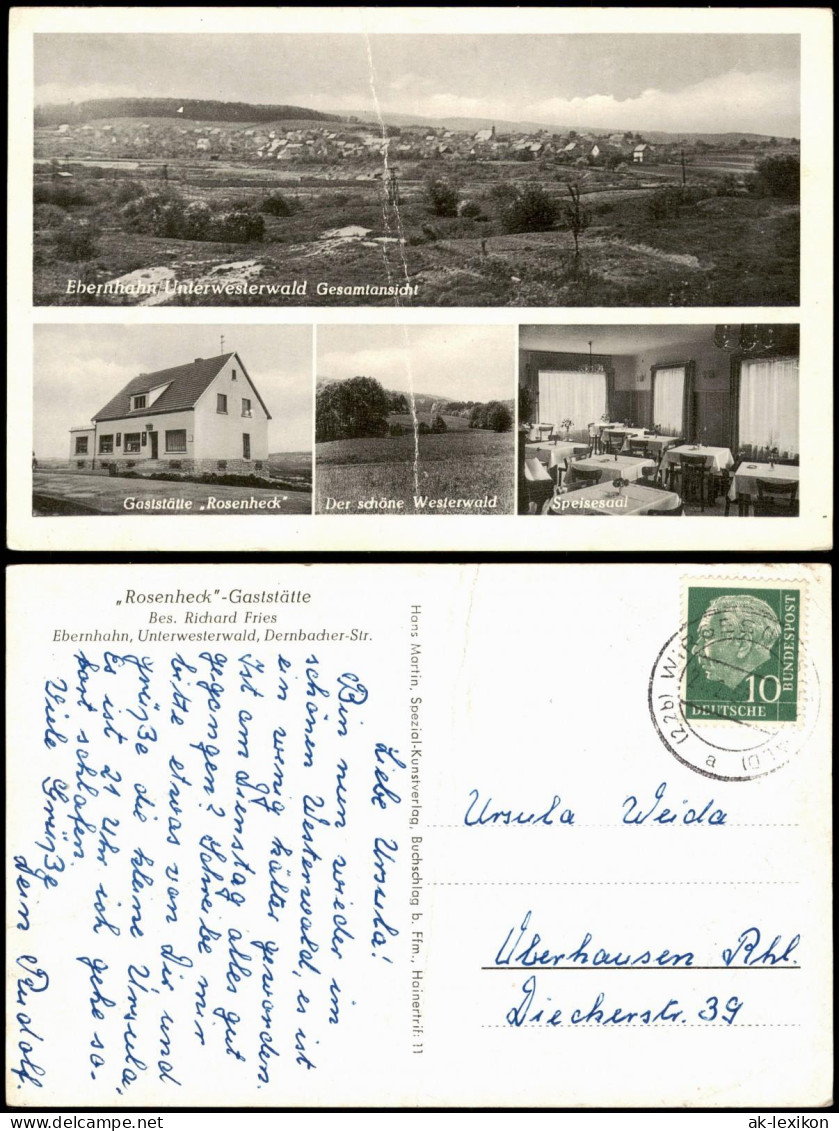 Ebernhahn/Unterwesterwald Gesamtansicht
Gaststätte „Rosenheck"
Der schöne Westerwald
Speisesaal
„Rosenheck"-Gaststätte
Bes. Richard Fries
Ebernhahn, Unterwesterwald, Dernbacher-Str.
Liebe Ursula!
Bin nun wieder im
schönen Westerwald, es ist
ein wenig kälter geworden.
Ist am Dienstag alles gut
gegangen? Schreibe mir
bitte etwas von Dir und
grüße die kleine Ursula.
Es ist 21 Uhr ich gehe so-
fort schlafen.
Viele Grüße
Dein Rudolf.
Hans Martin, Spezial-Kunstverlag, Buchschlag b. Ffm., Hainertrift 11
DEUTSCHE
BUNDESPOST
10
(22b) WIRGES
a
WALD)
Ursula Weida
Oberhausen Rhl.
Dieckerstr. 39
ak-lexikon